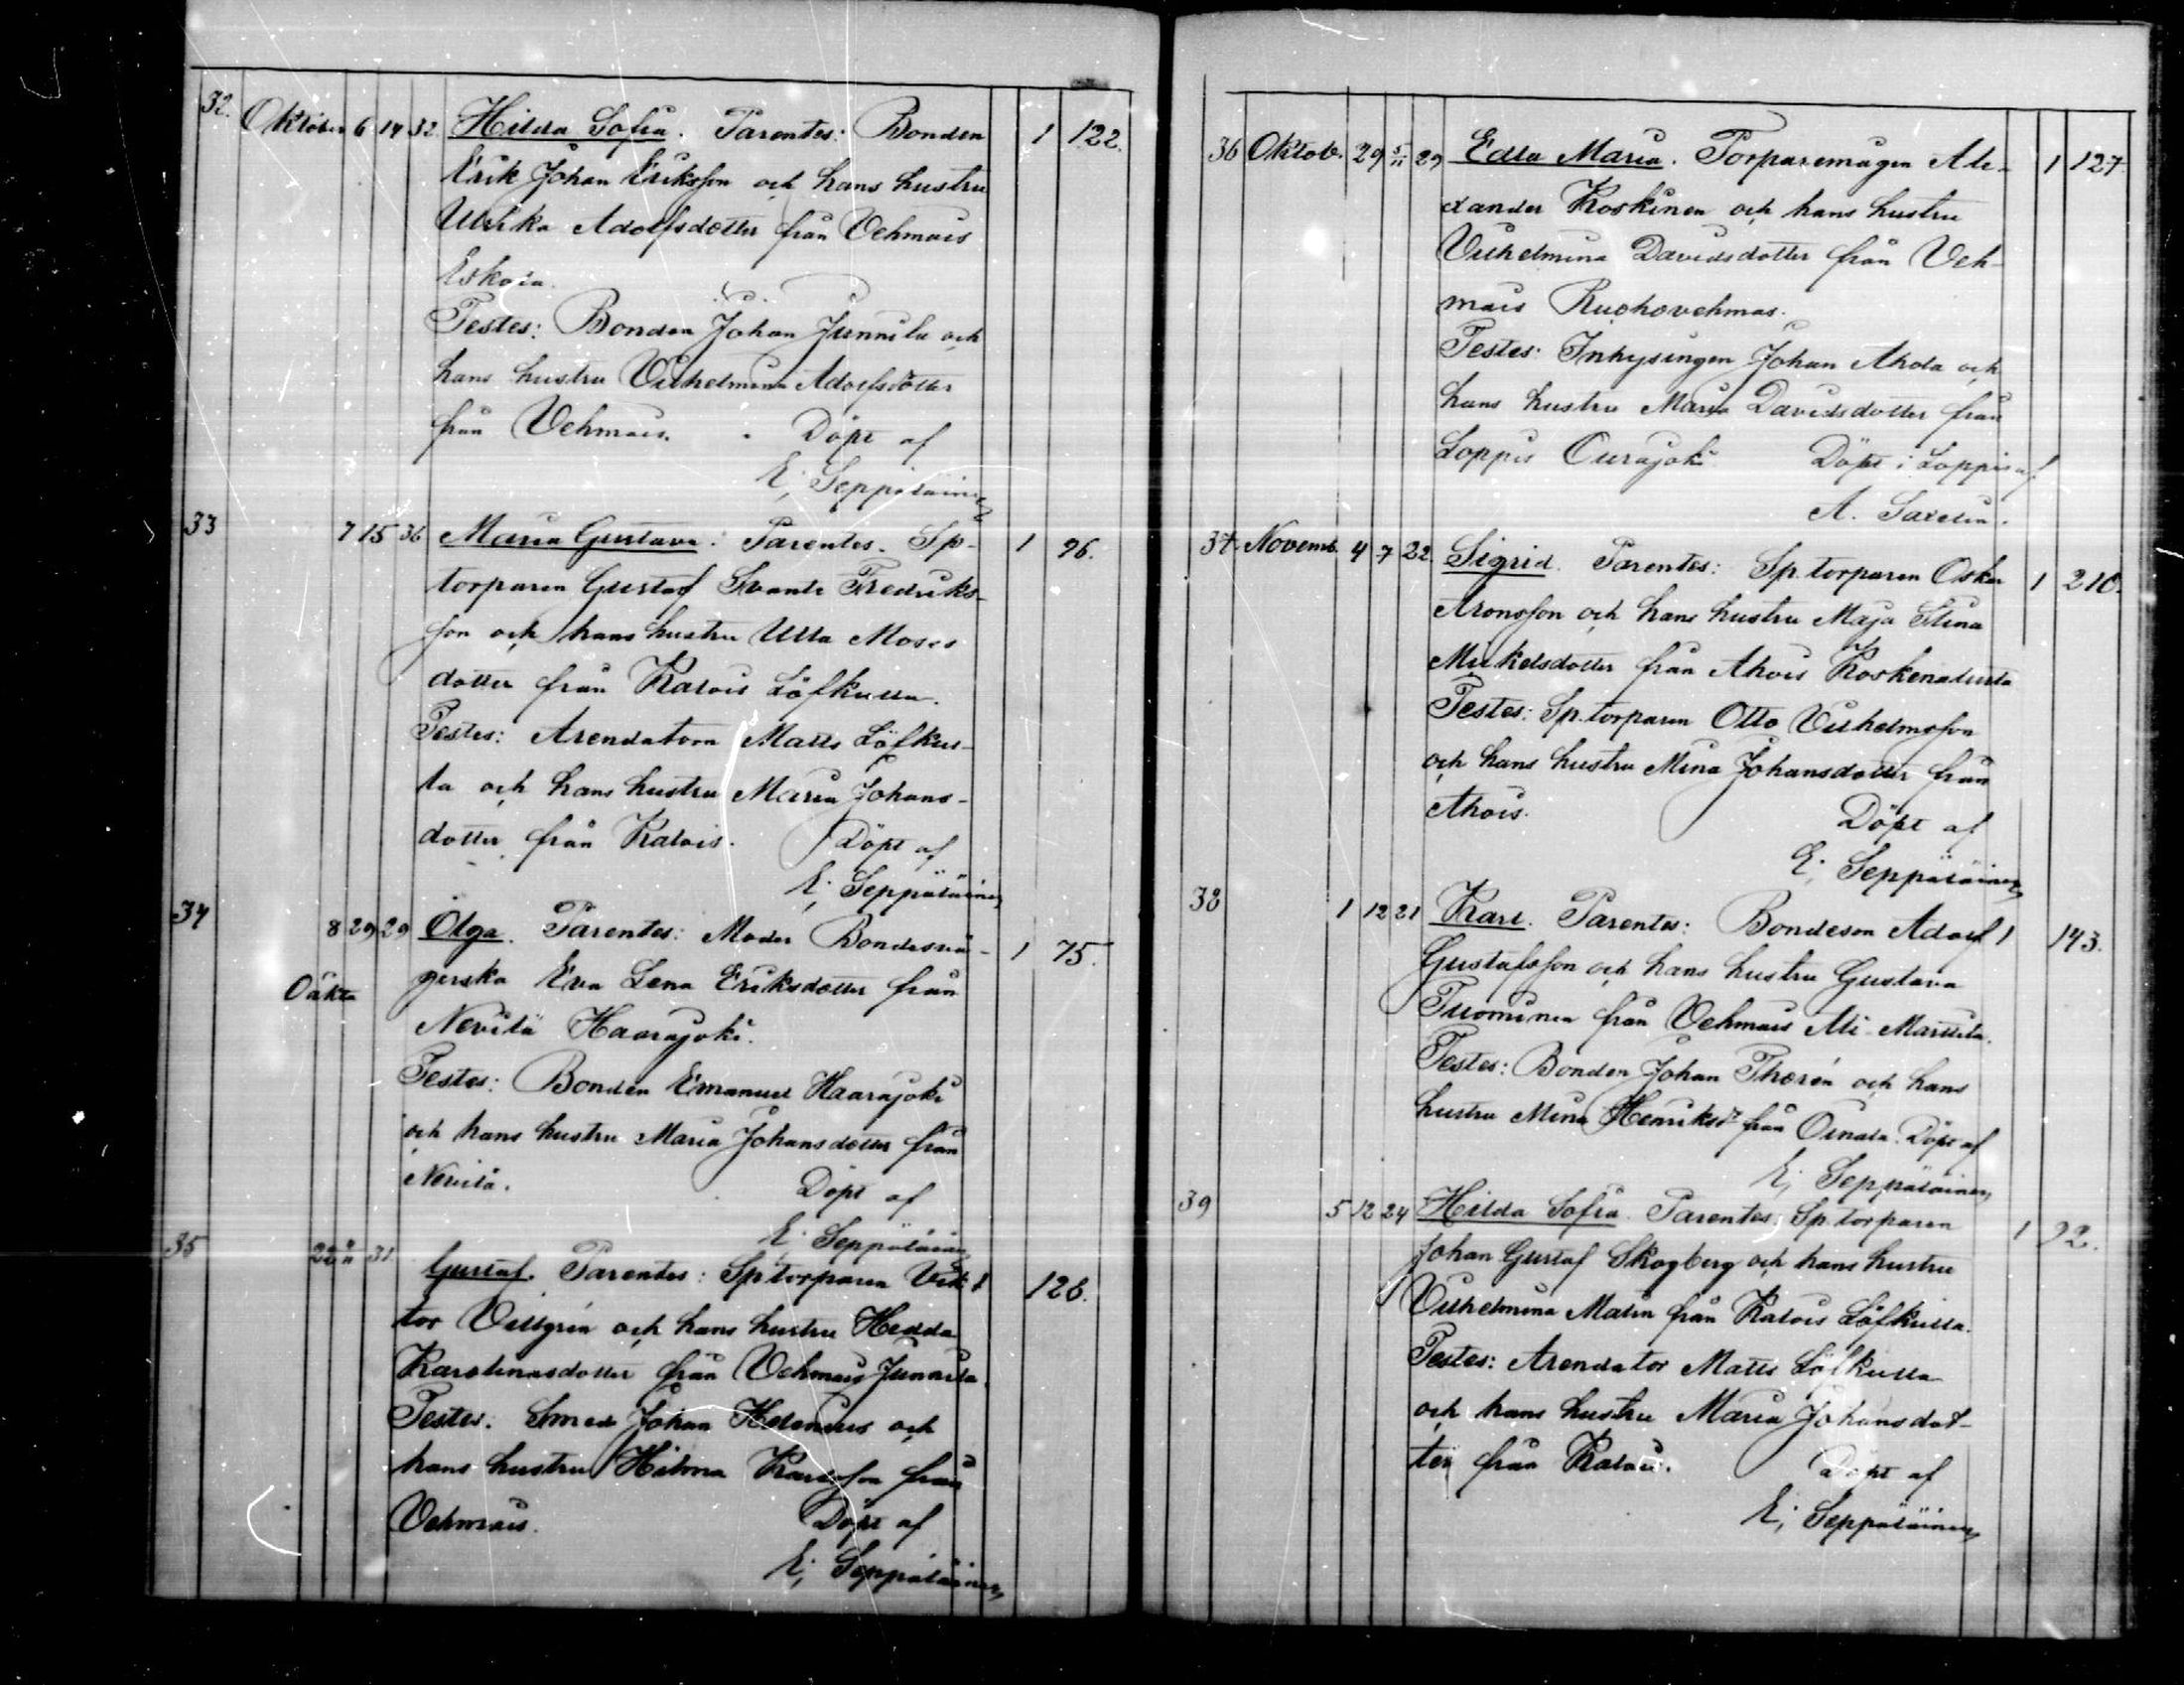 32. Oktober 6 14 32. Hilda Sofia. Parentes: Bonden 1 122.
Erik Johan Eriksson och hans hustru
Ulrika Adolfsdotter från Vehmais
Eskola.
Testes: Bonden Johan Junnila och
hans hustru Vilhelmina Adolfsdotter
från Vehmais. Döpt af
E; Seppäläinen
33 7 15 36 Maria Gustava. Parentes. Sp- 1 96.
torparen Gustaf Svante Fredriks-
son och hans hustru Ulla Moses
dotter från Kalois Löfkulla.
Testes: Arendatorn Matts Löfkul-
la och hans hustru Maria Johans-
dotter från Kalois. Döpt af
E; Seppäläinen
34 8 29 29 Olga. Parentes: Moder Bondesvä- 1 75.
Oäkta gerska Eva Lena Eriksdotter från
Nevilä Haarajoki.
Testes: Bonden Emanuel Haarajoki
och hans hustru Maria Johansdotter från
Nevilä. Döpt af
E; Seppäläinen
35 31 Gustaf. Parentes: Sp torparen Vik- 1 126.
tor Vellgrén och hans hustru Hedda
Karolinasdotter från Vehmais Junnila.
Testes. Smed Johan Helenius och
hans hustru Hilma Karlsson från
Vehmais. Döpt af
E; Seppäläinen
36 Oktob. 29 5/11 29 Edla Maria. Torparemågen Ale- 1 127
xander Koskinen och hans hustru
Vilhelmina Davidsdotter från Veh-
mais Ruohovehmas.
Testes: Inhysingen Johan Ahola och
hans hustru Maria Davidsdotter från
Loppis Ourajoki Döpt i Loppis af
A. Saxelin.
37. Novemb. 4 7 22. Sigrid. Parentes: Sp. torparen Oskar 1 210.
Aronsson och hans hustru Maja Stina
Mikelsdotter från Ahois Koskenalusta
Testes: Sp. torparen Otto Vilhelmsson
och hans hustru Mina Johansdotter från
Ahois. Döpt af
E; Seppäläinen
38 1 12 21 Karl. Parentes: Bondeson Adolf 1 143.
Gustafsson och hans hustru Gustava
Tuominen från Vehmais Ali-Marttila.
Testes: Bonden Johan Thorén och hans
hustru Mina Henriksdr från Oinala. Döpt af
E; Seppäläinen
39 5 12 24 Hilda Sofia. Parentes: Sp. torparen 1 92.
Johan Gustaf Skogberg och hans hustru
Vilhelmina Malin från Kalois Löfkulla.
Testes: Arendator Matts Löfkulla
och hans hustru Maria Johansdot-
ter från Kalois. Döpt af
E; Seppäläinen